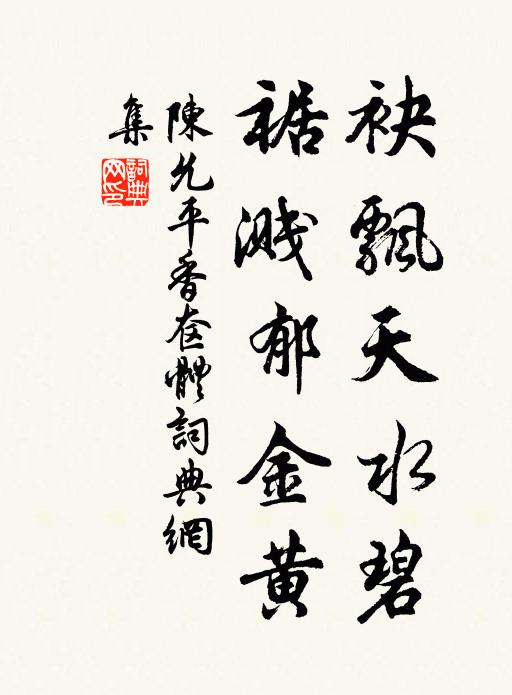 袂飄天水碧
裾濺郁金黄
陳允平香奩體詞典網
集
詞典網印